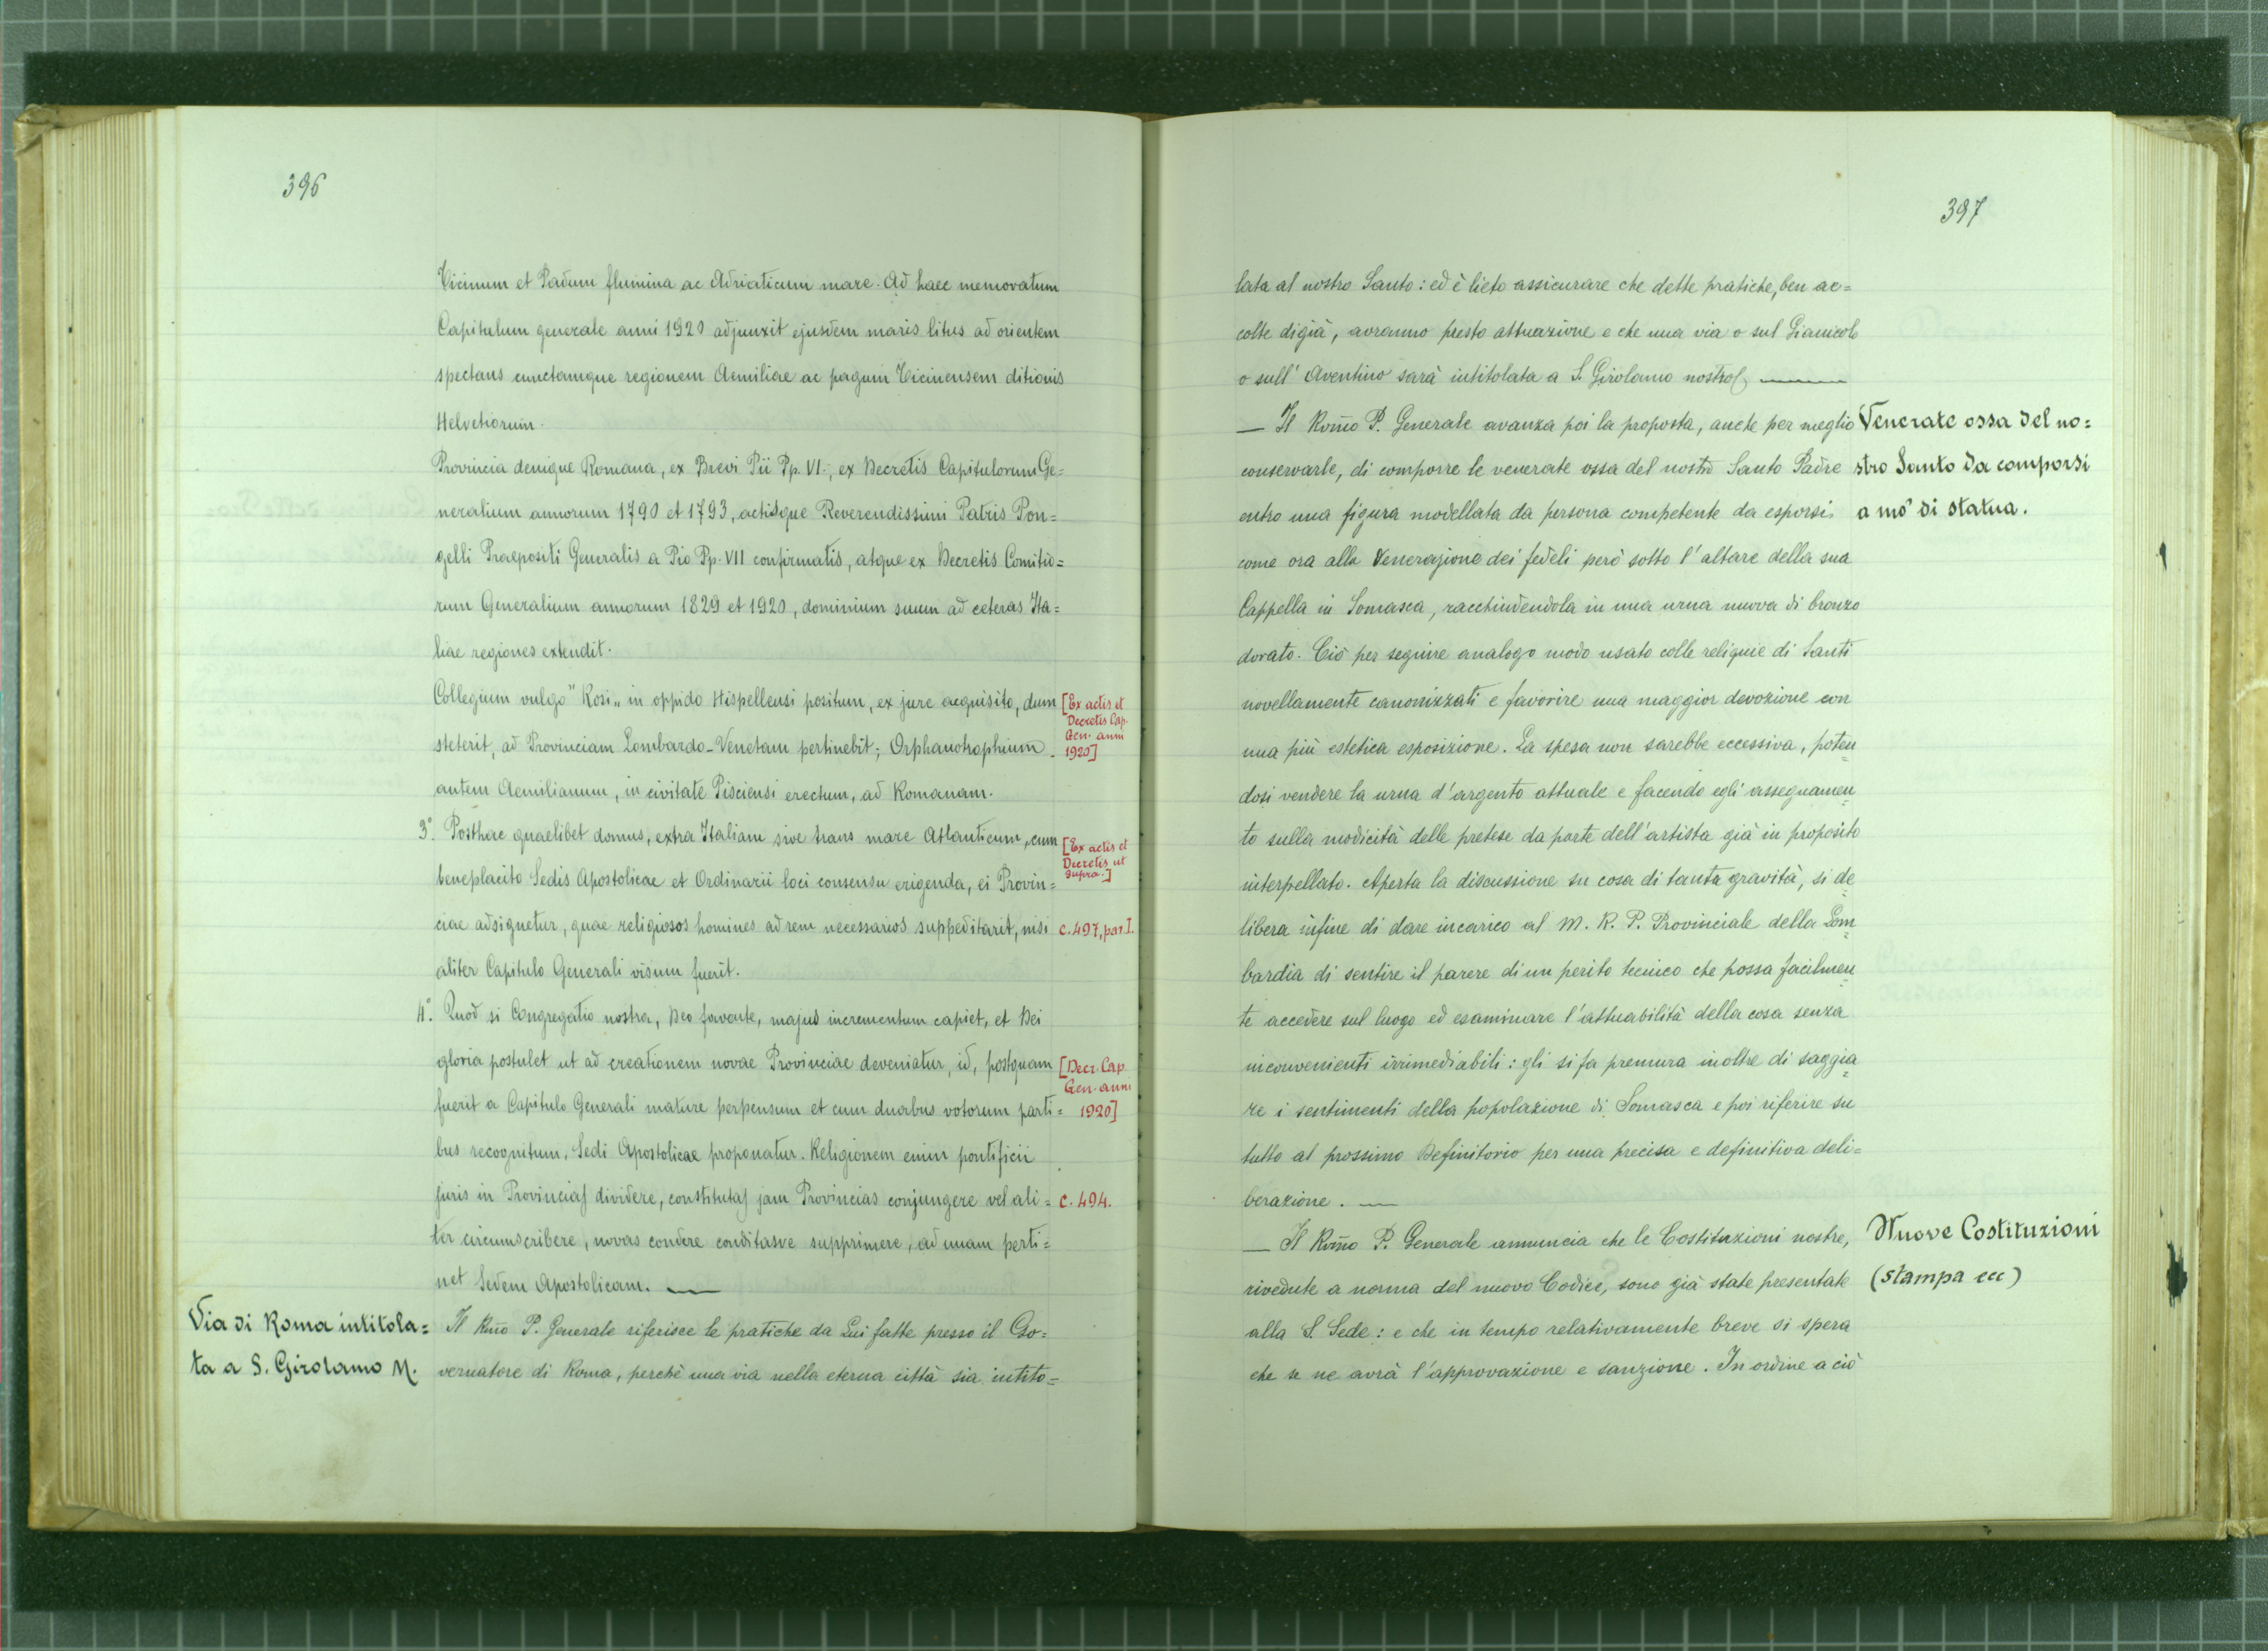 396
Ticinum et Padum flumina ac Adriaticum mare. Ad haec memoratum
Capitulum generale anni 1920 adjunxit ejusdem maris litus ad orientem
spectans cunctamque regionem Aemiliae ac pagum Ticinensem ditionis
Helvetiorum.
Provincia denique Romana, ex Brevi Pii Pp. VI., ex Decretis Capitulorum Ge=
neralium annorum 1790 et 1793, actisque Reverendissimi Patris Pon=
gelli Praepositi Generalis a Pio Pp. VII confirmatis, atque ex Decretis Comitio=
rum Generalium annorum 1829 et 1920, dominium suum ad ceteras Ita=
liae regiones extendit.
Collegium vulgo "Rosi„ in oppido Hispellensi positum, ex jure acquisito, dum
steterit, ad Provinciam Lombardo-Venetam pertinebit; Orphanotrophium
autem Aemilianum, in civitate Pisciensi erectum, ad Romanam.
[Ex actis et
Decretis Cap.
Gen. anni
1920]
3.° Posthac quaelibet domus, extra Italiam sive trans mare Atlanticum, cum
beneplacito Sedis Apostolicae et Ordinarii loci consensu erigenda, ei Provin=
ciae adsignetur, quae religiosos homines ad rem necessarios suppeditarit, nisi
aliter Capitulo Generali visum fuerit.
[Ex actis et
Decretis ut
supra.]
c. 497, par. I.
4.° Quod si Congregatio nostra, Deo favente, majus incrementum capiet, et Dei
gloria postulet ut ad creationem novae Provinciae deveniatur, id, postquam
fuerit a Capitulo Generali mature perpensum et cum duabus votorum parti=
bus recognitum, Sedi Apostolicae proponatur. Religionem enim pontificii
juris in Provincias dividere, constitutas jam Provincias conjungere vel ali=
ter circumscribere, novas condere conditasve supprimere, ad unam perti=
net Sedem Apostolicam.
[Decr. Cap.
Gen. anni
1920]
c. 494.
Via di Roma intitola=
ta a S. Girolamo M.
Il Rmo P. Generale riferisce le pratiche da Lui fatte presso il Go=
vernatore di Roma, perchè una via nella eterna città sia intito=
397
lata al nostro Santo: ed è lieto assicurare che dette pratiche, ben ac=
colte digià, avranno presto attuazione e che una via o sul Gianicolo
o sull' Aventino sarà intitolata a S. Girolamo nostro.
— Il Rmo P. Generale avanza poi la proposta, anche per meglio
conservarle, di comporre le venerate ossa del nostro Santo Padre
entro una figura modellata da persona competente da esporsi
come ora alla Venerazione dei fedeli però sotto l'altare della sua
Cappella in Somasca, racchiudendola in una urna nuova di bronzo
dorato. Ciò per seguire analogo modo usato colle reliquie di Santi
novellamente canonizzati e favorire una maggior devozione con
una più estetica esposizione. La spesa non sarebbe eccessiva, poten=
dosi vendere la urna d'argento attuale e facendo egli assegnamen=
to sulla modicità delle pretese da parte dell'artista già in proposito
interpellato. Aperta la discussione su cosa di tanta gravità, si de=
libera infine di dare incarico al M. R. P. Provinciale della Lom=
bardia di sentire il parere di un perito tecnico che possa facilmen=
te accedere sul luogo ed esaminare l'attuabilità della cosa senza
inconvenienti irrimediabili: gli si fa premura inoltre di saggia=
re i sentimenti della popolazione di Somasca e poi riferire su
tutto al prossimo Definitorio per una precisa e definitiva deli=
berazione.
Venerate ossa del no=
stro Santo da comporsi
a mo' di statua.
— Il Rmo P. Generale annuncia che le Costituzioni nostre,
rivedute a norma del nuovo Codice, sono già state presentate
alla S. Sede: e che in tempo relativamente breve si spera
che se ne avrà l'approvazione e sanzione. In ordine a ciò
Nuove Costituzioni
(stampa ecc)